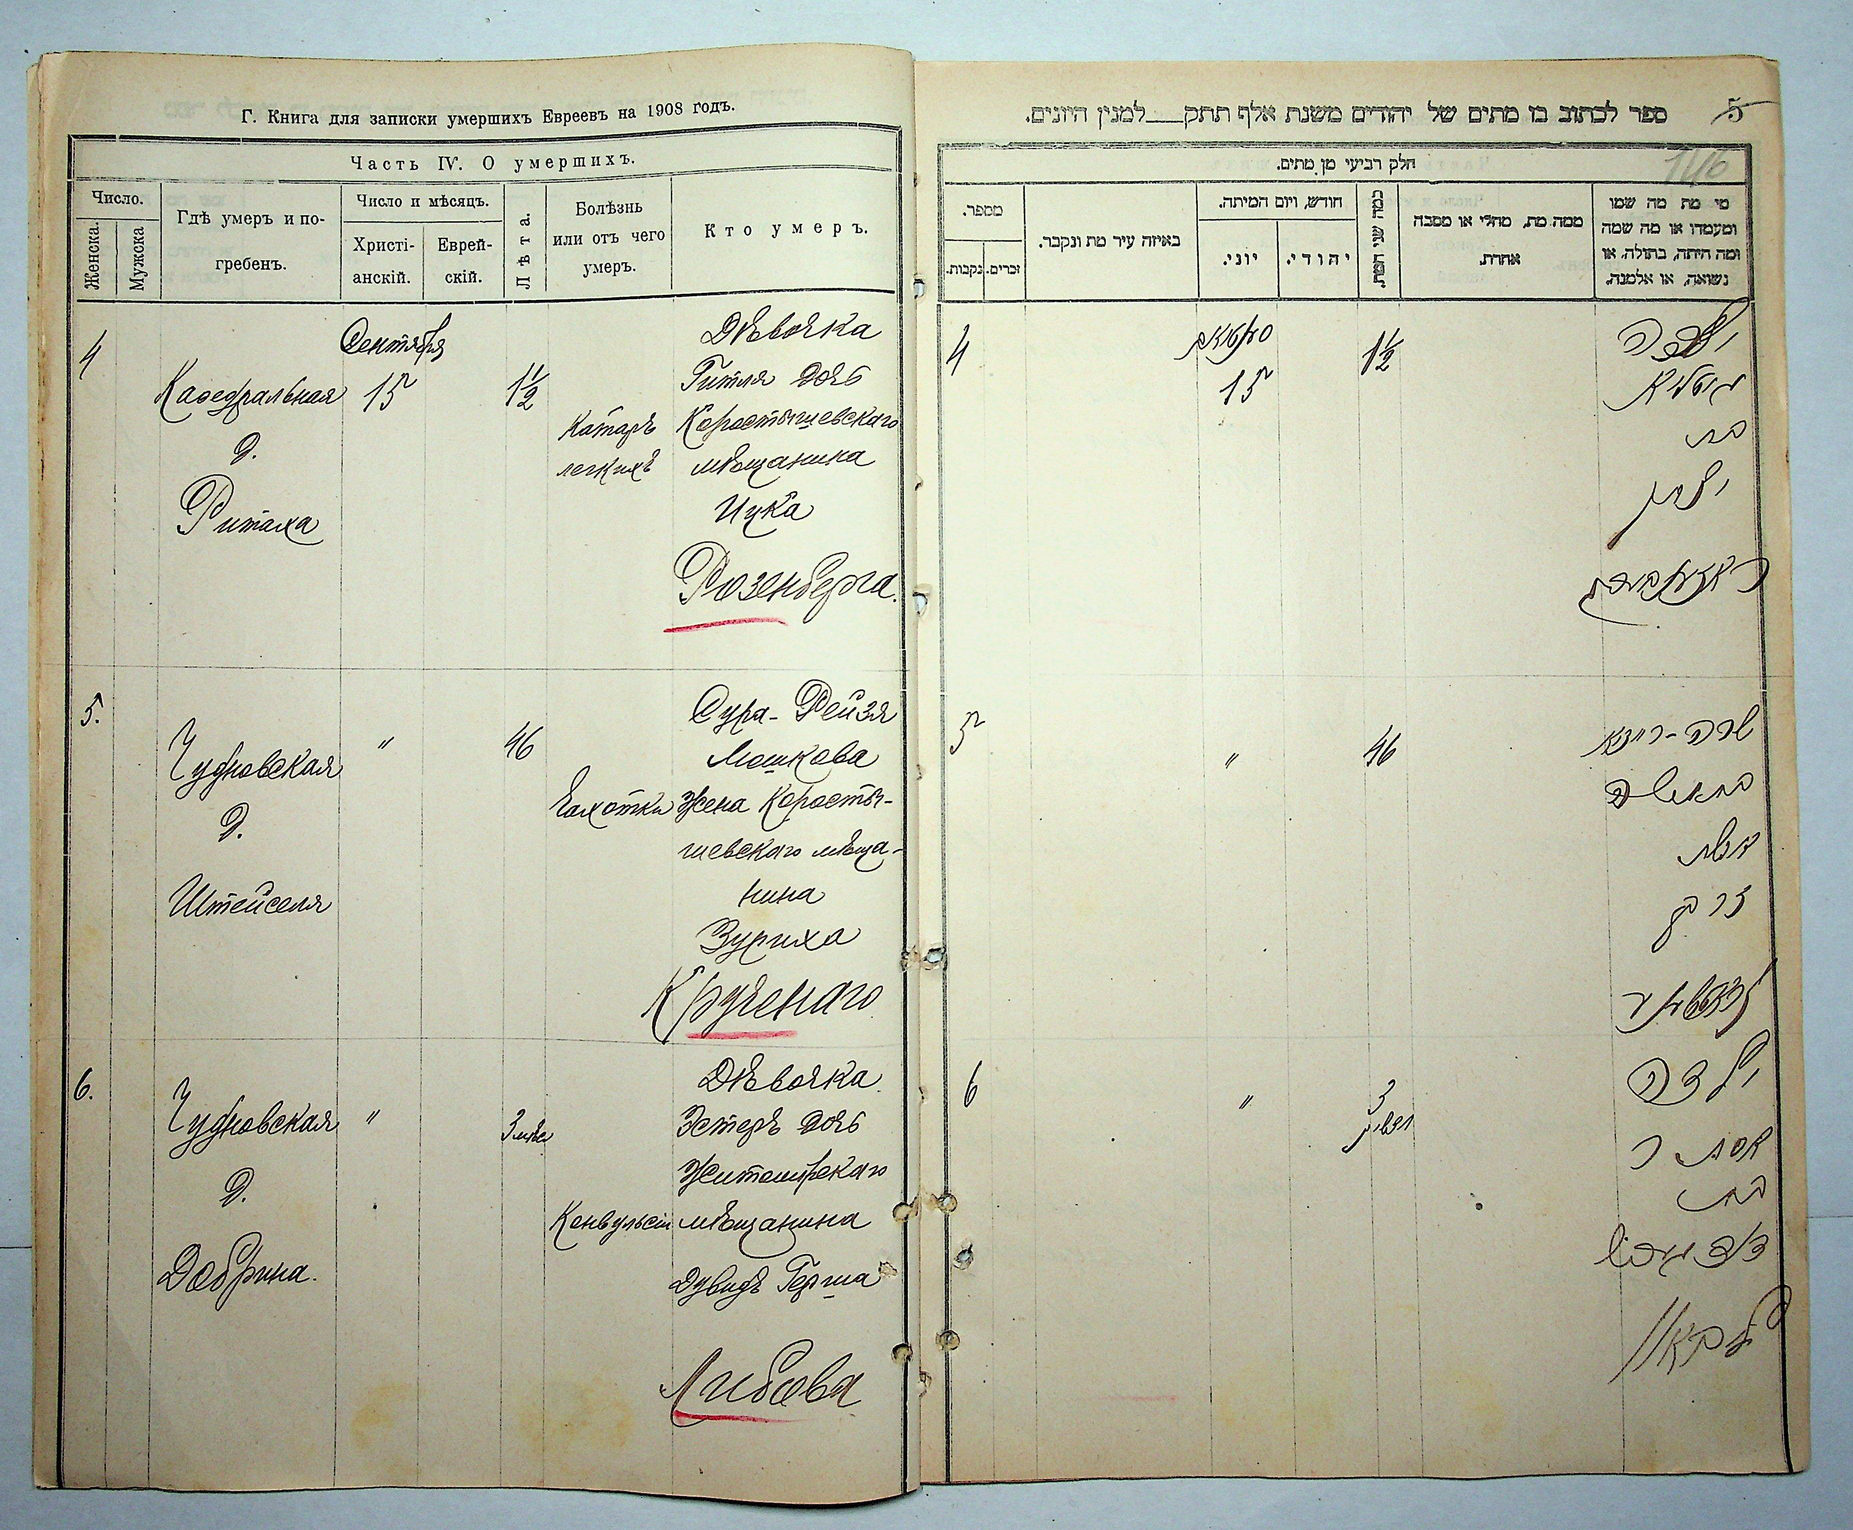 Г. Книга для записки умершихъ Евреевъ на 1908 годъ.
Часть IV. О умершихъ.
Число.
Женска.
Мужска
Гдѣ умеръ и по-
гребенъ.
Число и мѣсяцъ.
Христі-
анскій.
Еврей-
скій.
Лѣта.
Болѣзнь
или отъ чего
умеръ.
Кто умеръ.
4
Кафедральная
д.
Ритаха
Сентября
15
1½
Катаръ
легкихъ
Дѣвочка
Гитля дочь
Коростышевскаго
мѣщанина
Ицка
Розенберга.
5.
Чудновская
д.
Штейселя
"
46
Чахотка
Сура-Рейзя
Мошкова
жена Коросты-
шевскаго мѣща-
нина
Зуриха
Крученаго
6.
Чудновская
д.
Добрина.
"
3 мѣс
Конвульсіи
Дѣвочка
Эстеръ дочь
Житомірскаго
мѣщанина
Дувидъ Герша
Либова
ספר לכתוב בו מתים של יהודים משנת אלף תתק___למנין היונים.
5
146
חלק רביעי מן מתים.
מי מת מה שמו
ומעמדו או מה שמה
ומה היתה, בתולה, או
נשואה, או אלמנה.
ממה מת, מחלי או מסבה
אחרת.
כמה שני המת.
חודש, ויום המיתה.
יהודי.
יוני.
באיזה עיר מת ונקבר.
מספר.
זכרים.
נקבות.
4
15
1½
ילדה
גיטליא
בת
5
"
46
שרה-רייזא
אשת
6
"
3
ילדה
אסתר
בת